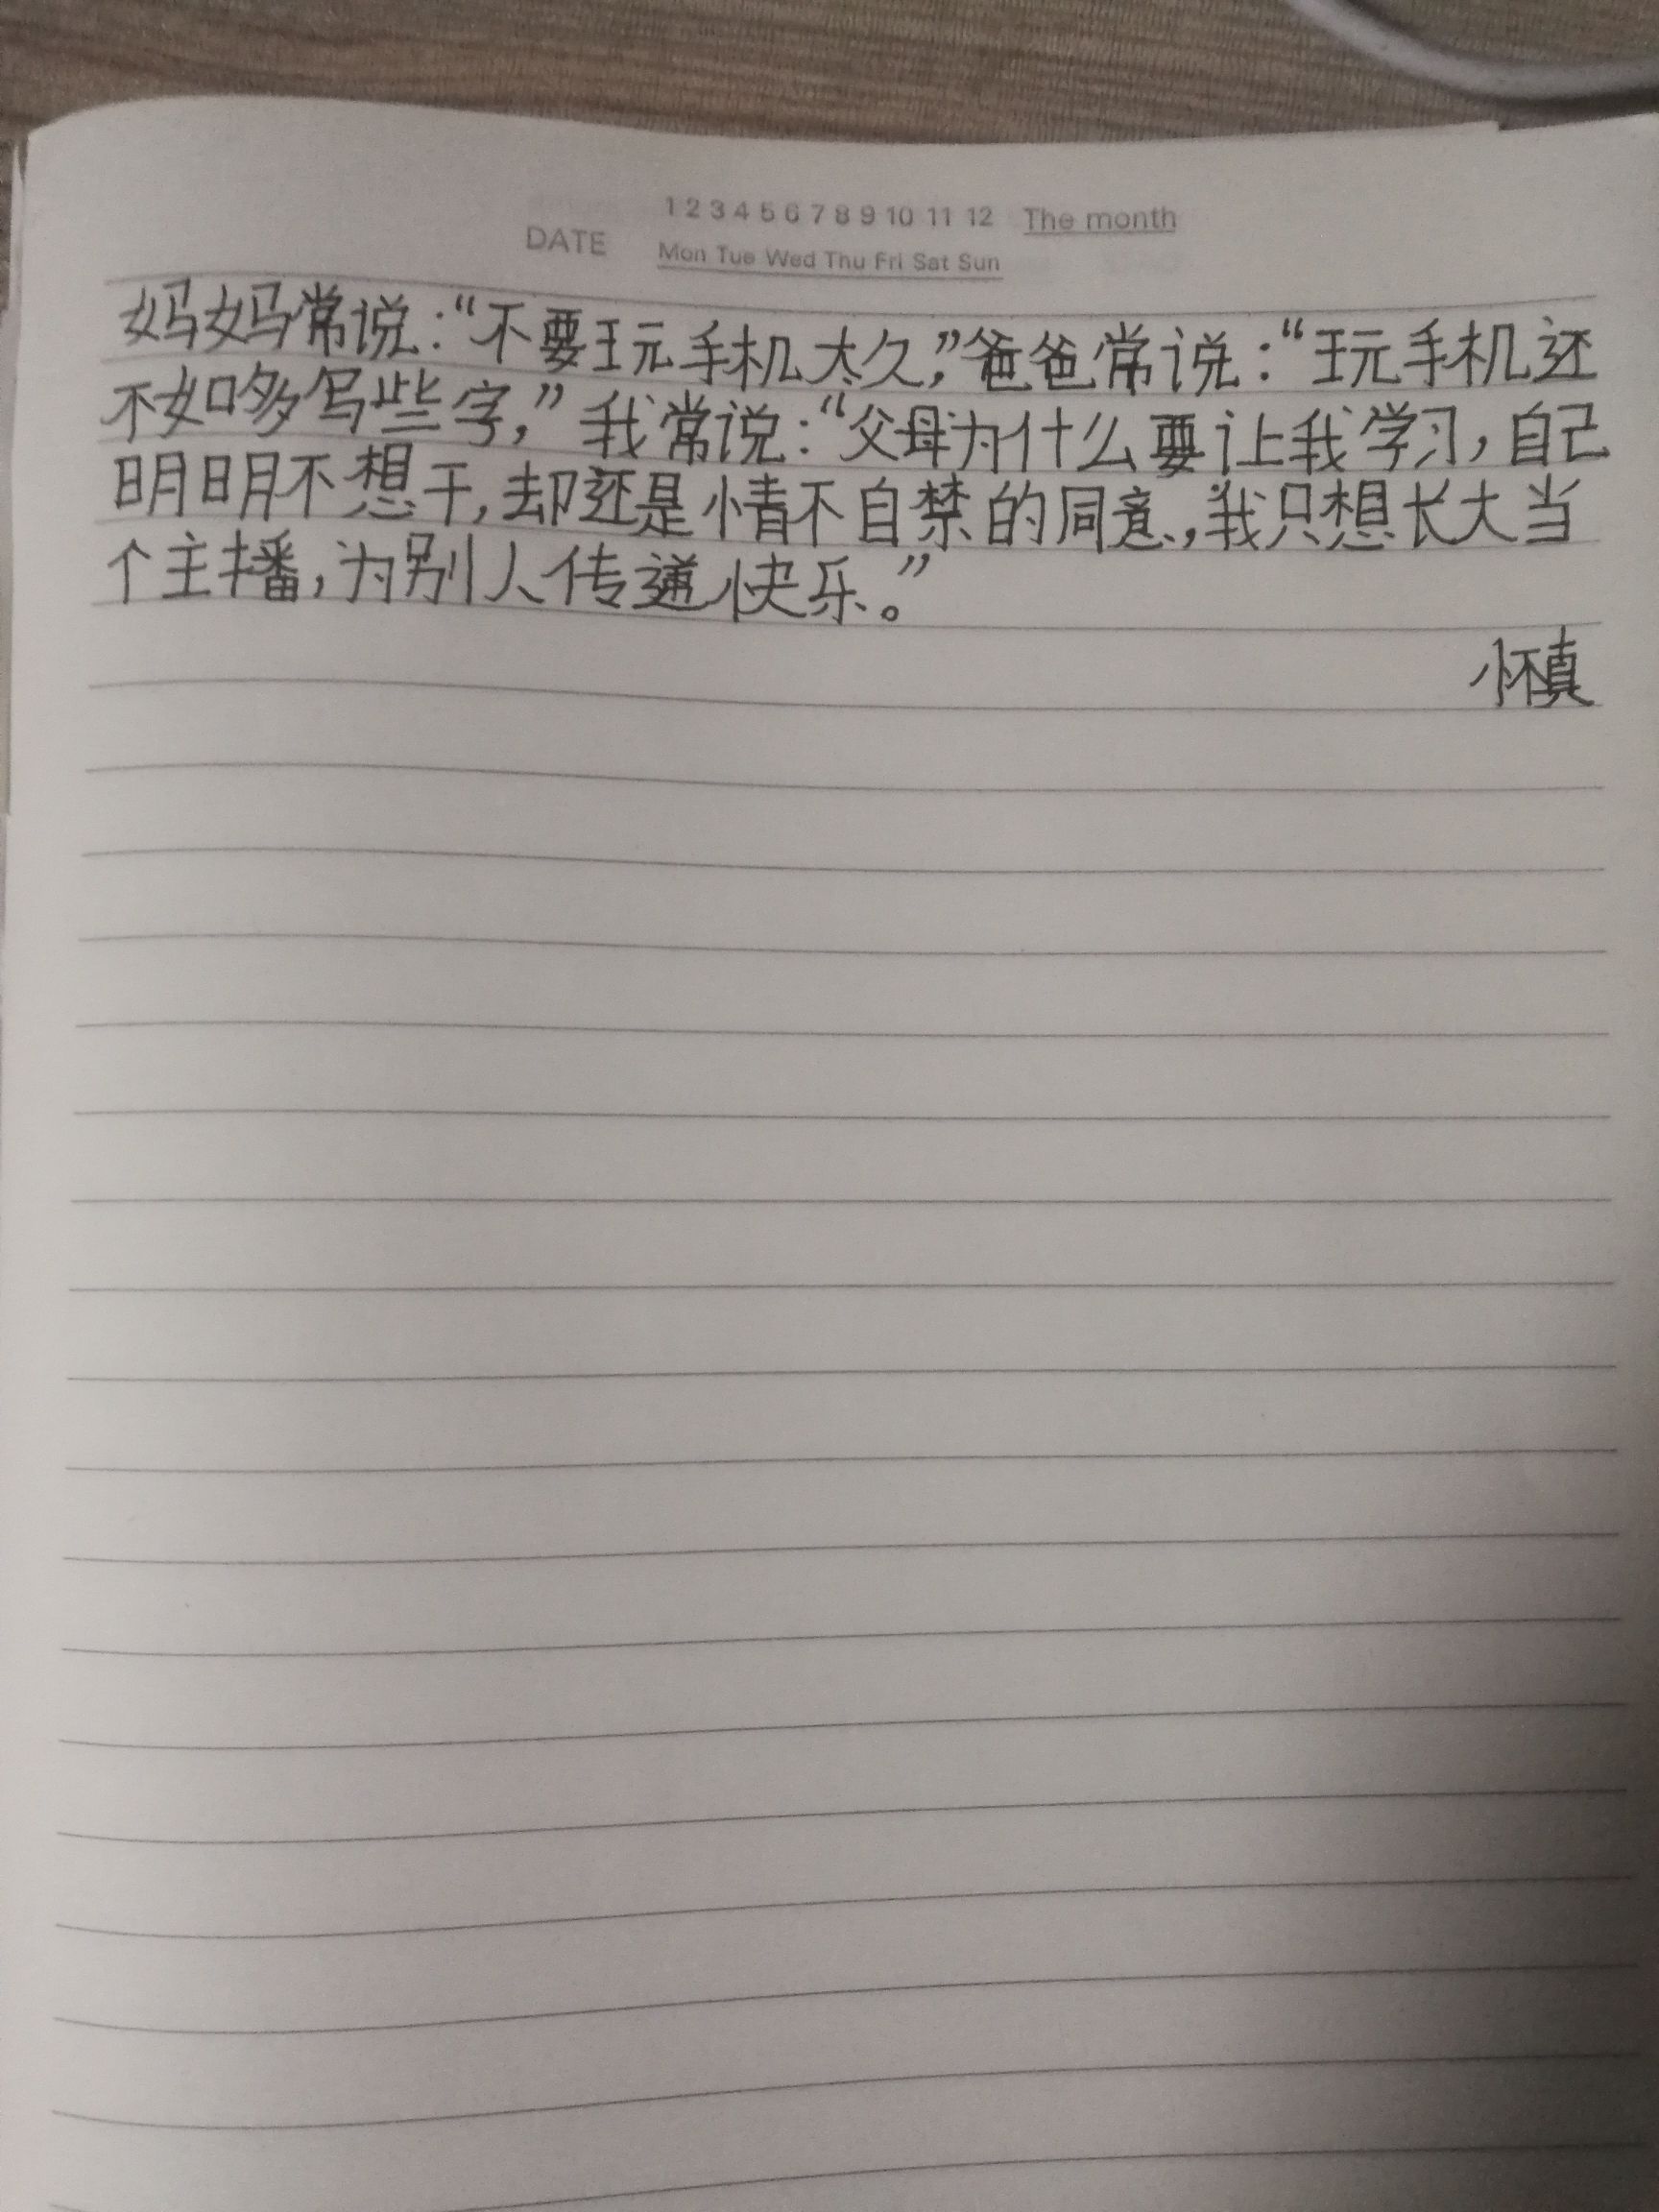 1 2 3 4 5 6 7 8 9 10 11 12 The month
DATE Mon Tue Wed Thu Fri Sat Sun
妈妈常说:“不要玩手机太久,”爸爸常说:“玩手机还
不如哆写些字,”我常说:“父母为什么要让我学习,自己
明明不想干,却还是情不自禁的同意,我只想长大当
个主播,为别人传递快乐。”
怀真